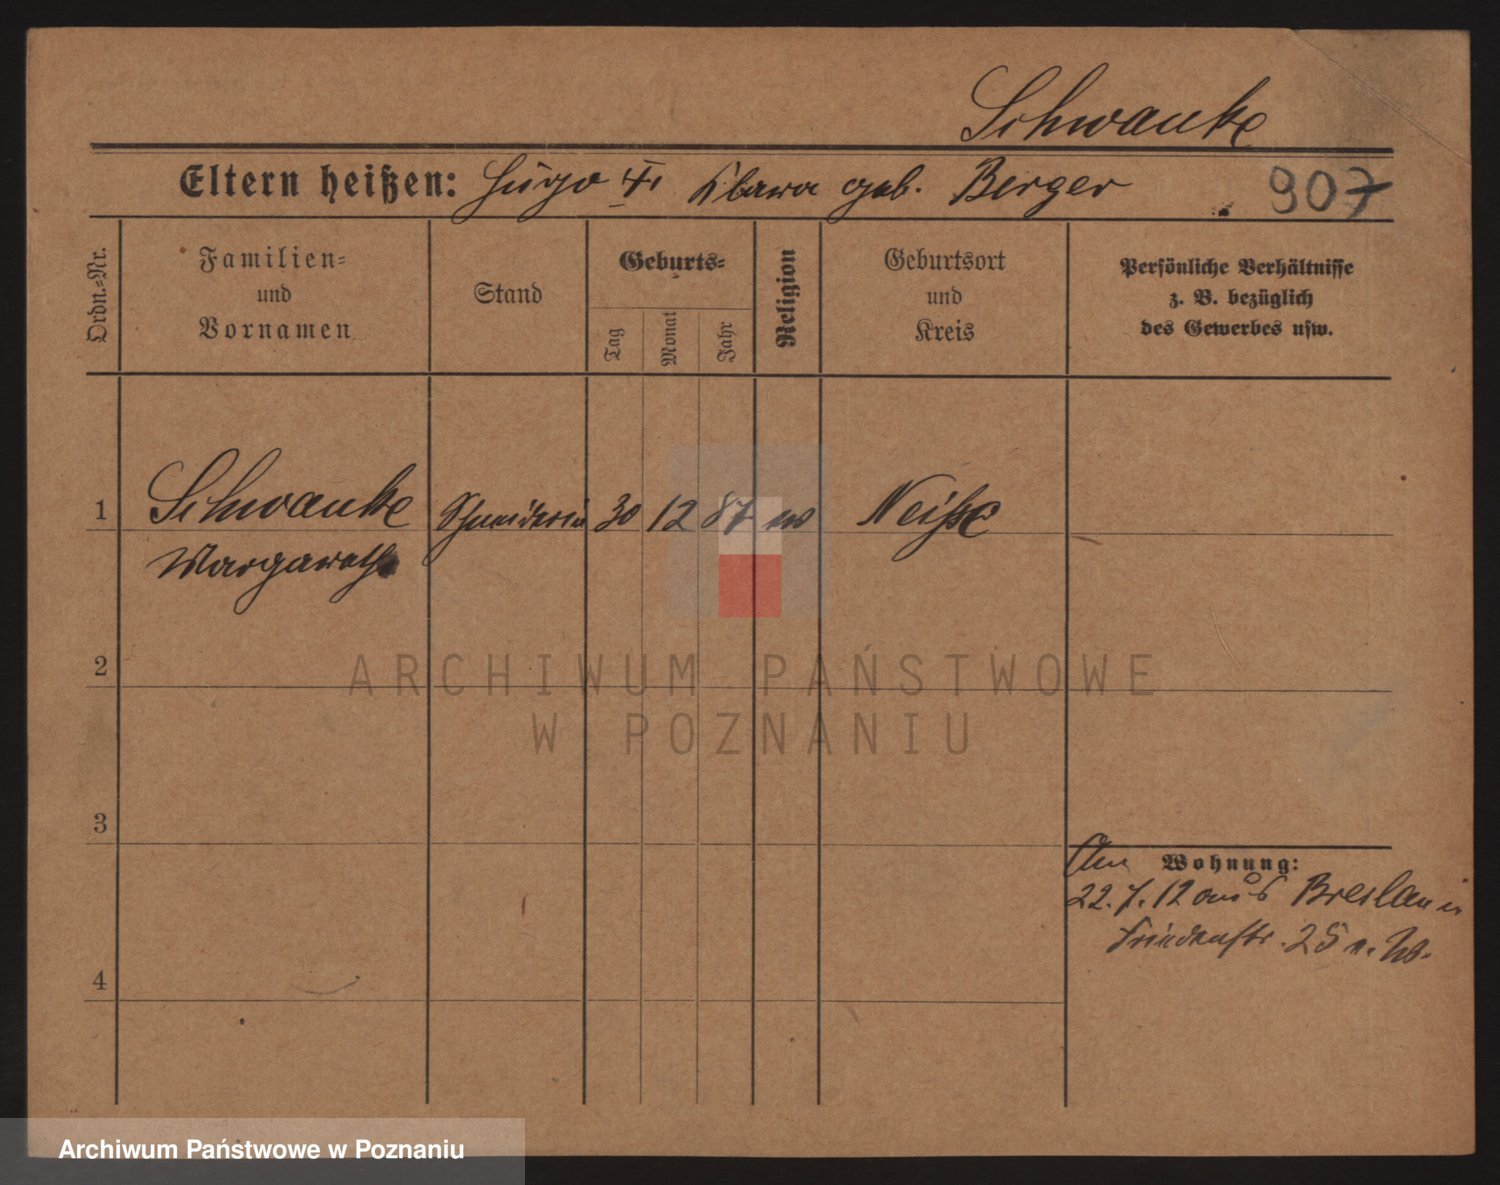 Schwanke
Eltern heißen: Hugo Clara geb. Berger 907
Ordn.=Nr.
Familien=
und
Vornamen
Stand
Geburts=
Tag
Monat
Jahr
Religion
Geburtsort
und
Kreis
Persönliche Verhältnisse
z. B. bezüglich
des Gewerbes usw.
1 Schwanke Schneiderin 30 12 87 Neiße
Margarethe
2
ARCHIWUM PAŃSTWOWE
W POZNANIU
3
Am Wohnung:
22.7.12 aus Breslau in
Friedenstr. 25
4
Archiwum Państwowe w Poznaniu